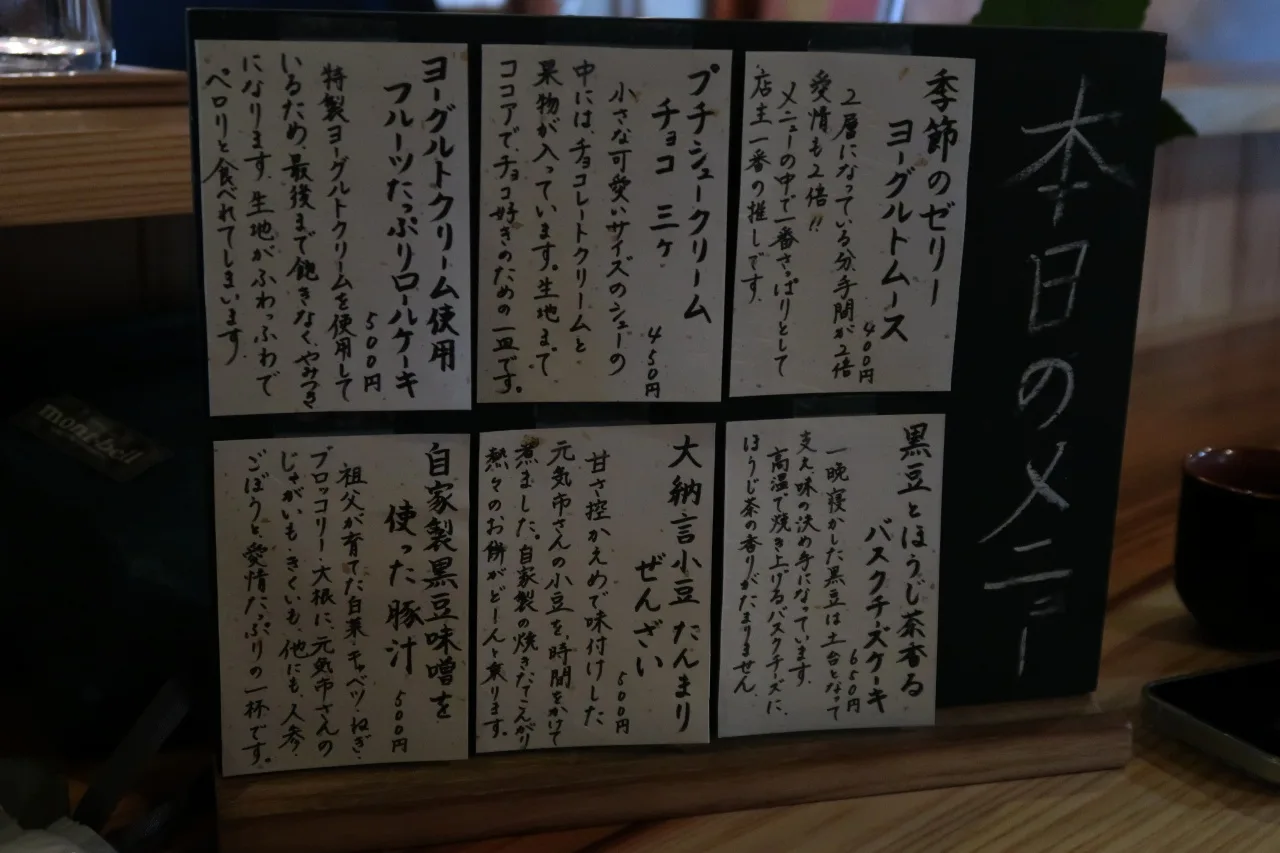 本日のメニュー
季節のゼリー
ヨーグルトムース
400円
2層になっている分、手間が2倍
愛情も2倍!!
メニューの中で一番さっぱりとして
店主一番の推しです。
プチシュークリーム
チョコ 三ヶ
450円
小さな可愛いサイズのシューの
中には、チョコレートクリームと
果物が入っています。生地まで
ココアで、チョコ好きのための一皿です。
ヨーグルトクリーム使用
フルーツたっぷりロールケーキ
500円
特製ヨーグルトクリームを使用して
いるため、最後まで飽きなく、やみつき
になります。生地がふわっふわで
ペロリと食べれてしまいます。
黒豆とほうじ茶香る
バスクチーズケーキ
650円
一晩寝かした黒豆は土台となって
支え、味の決め手になっています。
高温で焼き上げるバスクチーズに、
ほうじ茶の香りがたまりません。
大納言小豆たんまり
ぜんざい
500円
甘さ控かえめで味付けした
元気市さんの小豆を、時間をかけて
煮ました。自家製の焼きたてこんがり
熱々のお餅がどーんと乗ります。
自家製黒豆味噌を
使った豚汁
500円
祖父が育てた白菜・キャベツ・ねぎ・
ブロッコリー・大根に、元気市さんの
じゃがいも・きくいも、他にも、人参・
ごぼうと、愛情たっぷりの一杯です。
mont-bell